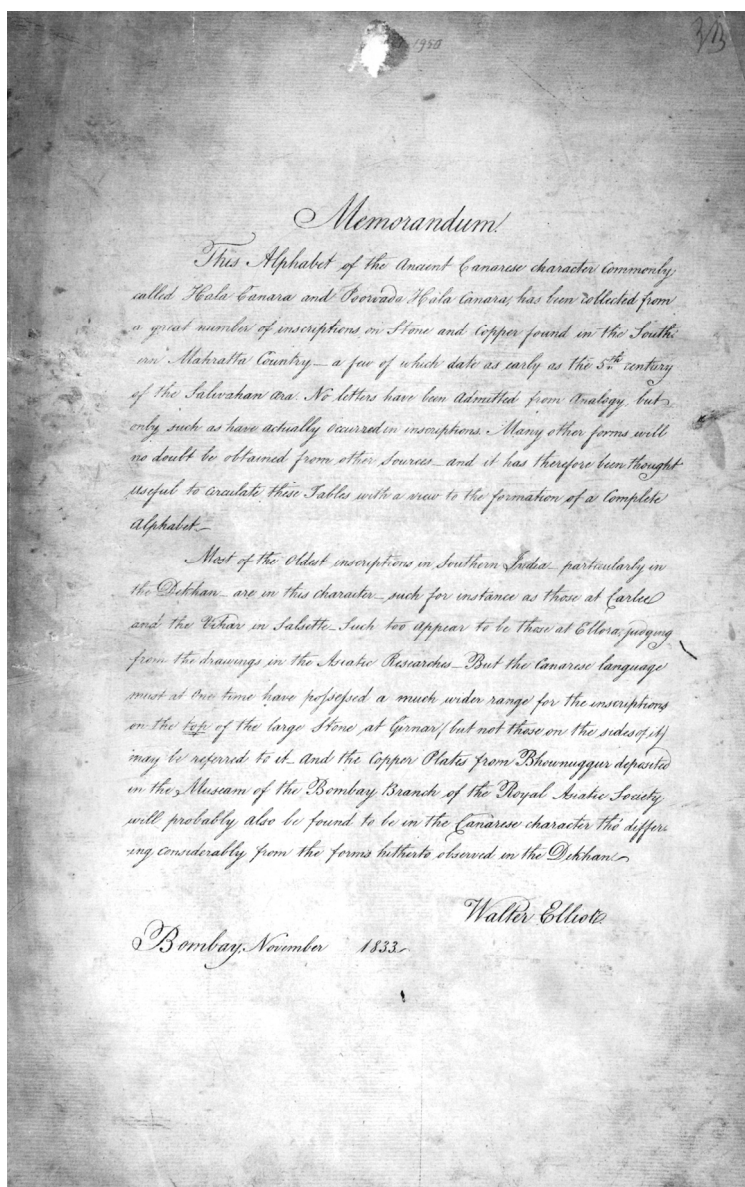 1950
Memorandum.
This Alphabet of the Ancient Canarese character commonly
called Hala Canara and Poorvada Hala Canara, has been collected from
a great number of inscriptions on Stone and Copper found in the South-
ern Mahratta Country – a few of which date as early as the 5th century
of the Salivahan æra. No letters have been admitted from Analogy but
only such as have actually occurred in inscriptions. Many other forms will
no doubt be obtained from other sources – and it has therefore been thought
useful to circulate these Tables with a view to the formation of a Complete
Alphabet –
Most of the Oldest inscriptions in Southern India – particularly in
the Dekhan – are in this character – such for instance as those at Carlee
and the Vihar in Salsette – Such too appear to be those at Ellora, judging
from the drawings in the Asiatic Researches – But the Canarese language
must at one time have possessed a much wider range for the inscriptions
on the top of the large Stone at Girnar (but not those on the sides of it)
may be referred to it – and the Copper Plates from Bhownuggur deposited
in the Museam of the Bombay Branch of the Royal Asiatic Society
will probably also be found to be in the Canarese character tho' differ-
ing considerably from the forms hitherto observed in the Dekhan –
Walter Elliot.
Bombay, November 1833 –